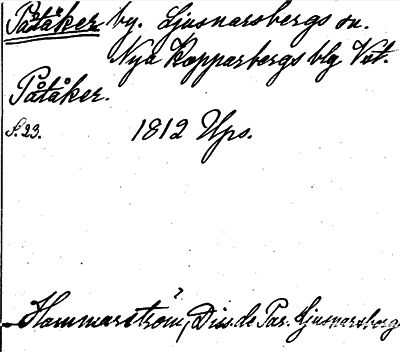 Påtåker by. Ljusnarsbergs sn.
Nya Kopparbergs blg Vst.
Påtåker.
S. 23. 1812 Ups.
Hammarström, Diss. de Par. Ljusnarsberg